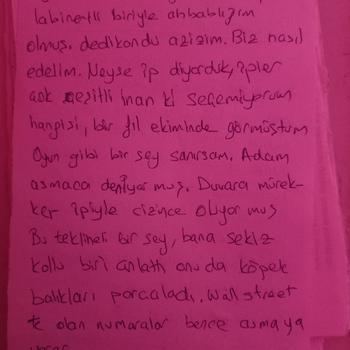 biriyle ahbablığım
olmuş, dedikondu azizim. Biz nasıl
edelim. Neyse ip diyorduk, ipler
çok çeşitli inan ki seçemiyorum
hangisi, bir fil ekiminde görmüştüm
Oyun gibi bir şey sanırsam. Adam
asmaca deniyor muş. Duvara mürek-
kep ipiyle çizince oluyor muş
Bu teklineli bir şey, bana sekiz
kollu biri anlattı onu da köpek
balıkları parçaladı. Wall street
te olan numaralar bence asmaya